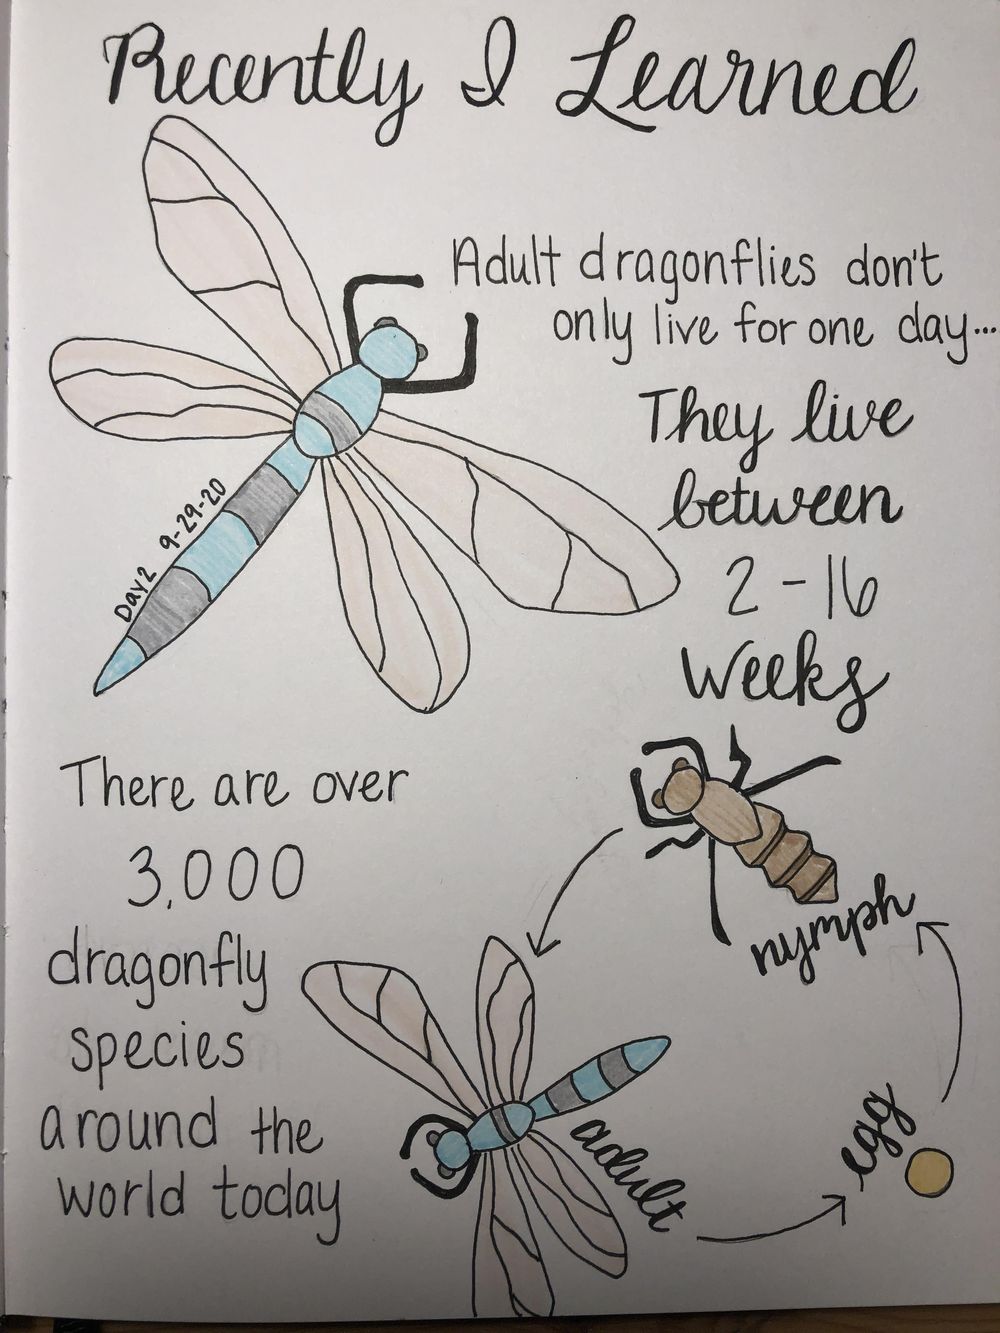 Recently I Learned
Adult dragonflies don't
only live for one day...
They live
between
2-16
Weeks
Day 2 9-29-20
There are over
3,000
dragonfly
species
around the
world today
nymph
egg
adult